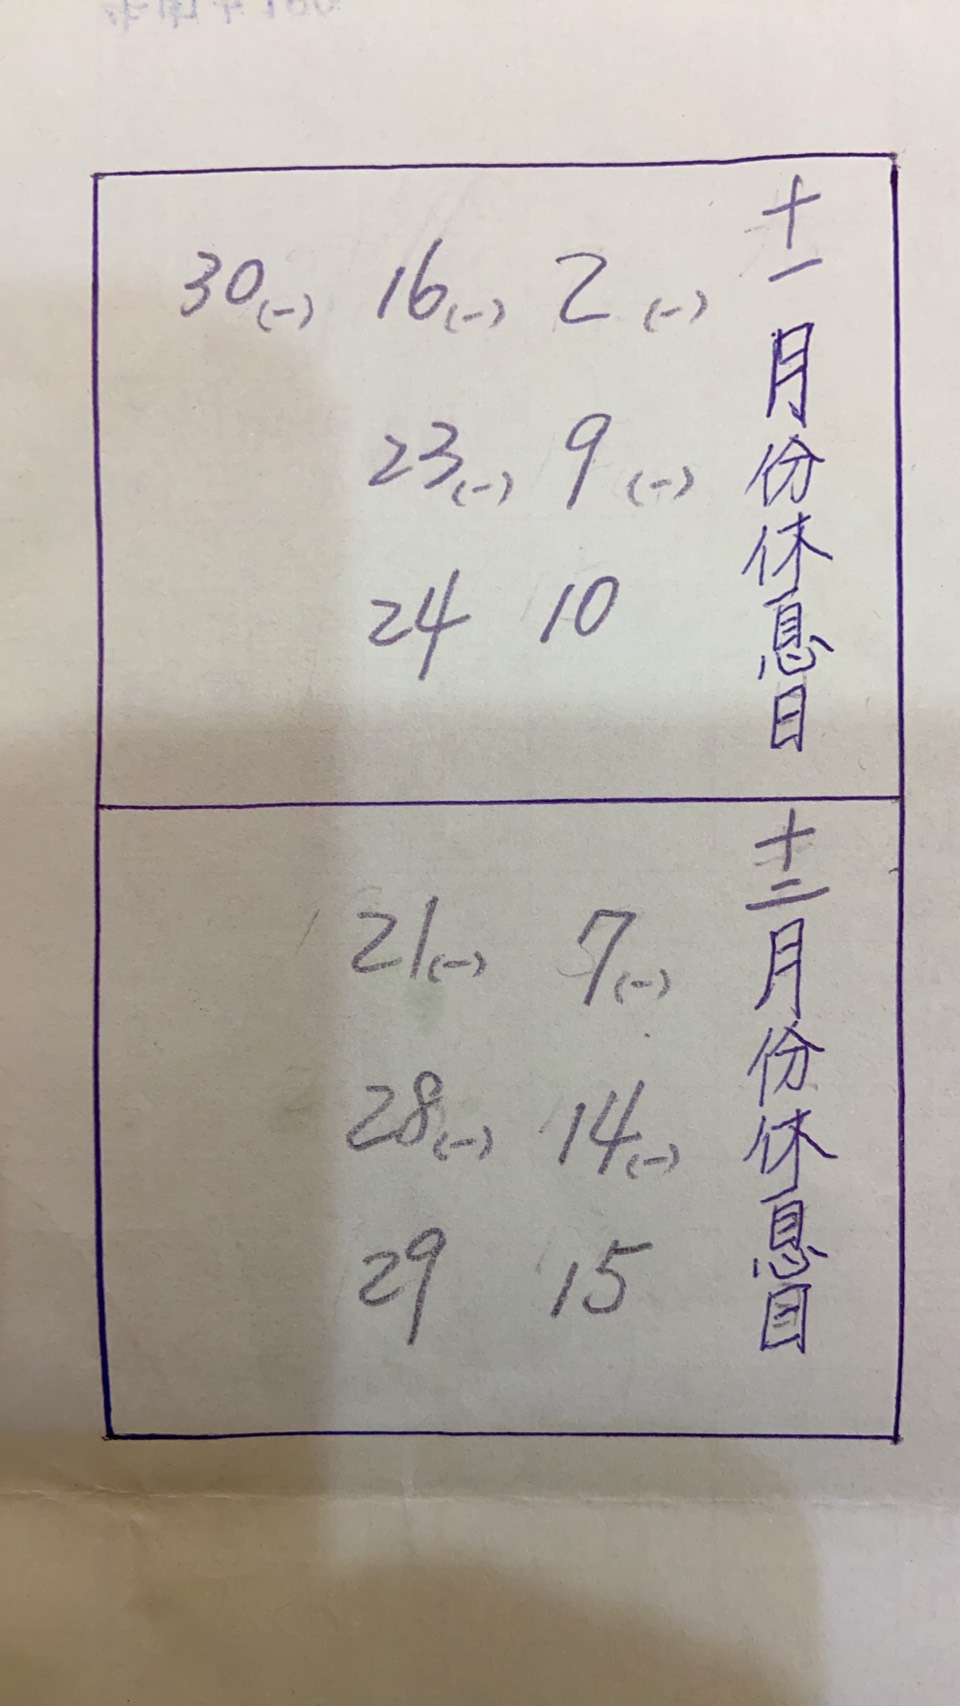 十一月份休息日
2(一)
9(一)
10
16(一)
23(一)
24
30(一)
十二月份休息日
7(一)
14(一)
15
21(一)
28(一)
29